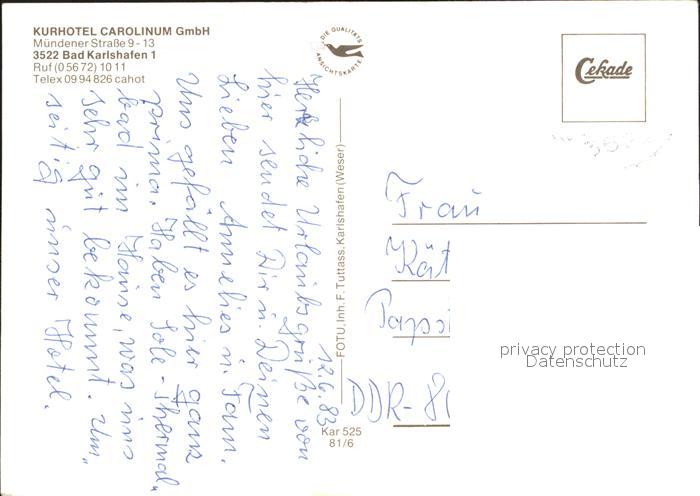 KURHOTEL CAROLINUM GmbH
Mündener Straße 9 - 13
3522 Bad Karlshafen 1
Ruf (0 56 72) 10 11
Telex 09 94 826 cahot
DIE QUALITÄTS
ANSICHTSKARTE
Cekade
12.6.83
Herzliche Urlaubsgrüße von
hier sendet Dir u. Deinen
Lieben Annelies u. Fam.
Uns gefällt es hier ganz
prima. Haben Sole-Thermal„
bad im Hause, was uns
sehr gut bekommt. Um„
seitig unser Hotel.
FOTU. Inh. F. Tuttass. Karlshafen (Weser)
Kar 525
81/6
Frau
Kät
Papsi
DDR-8
privacy protection
Datenschutz